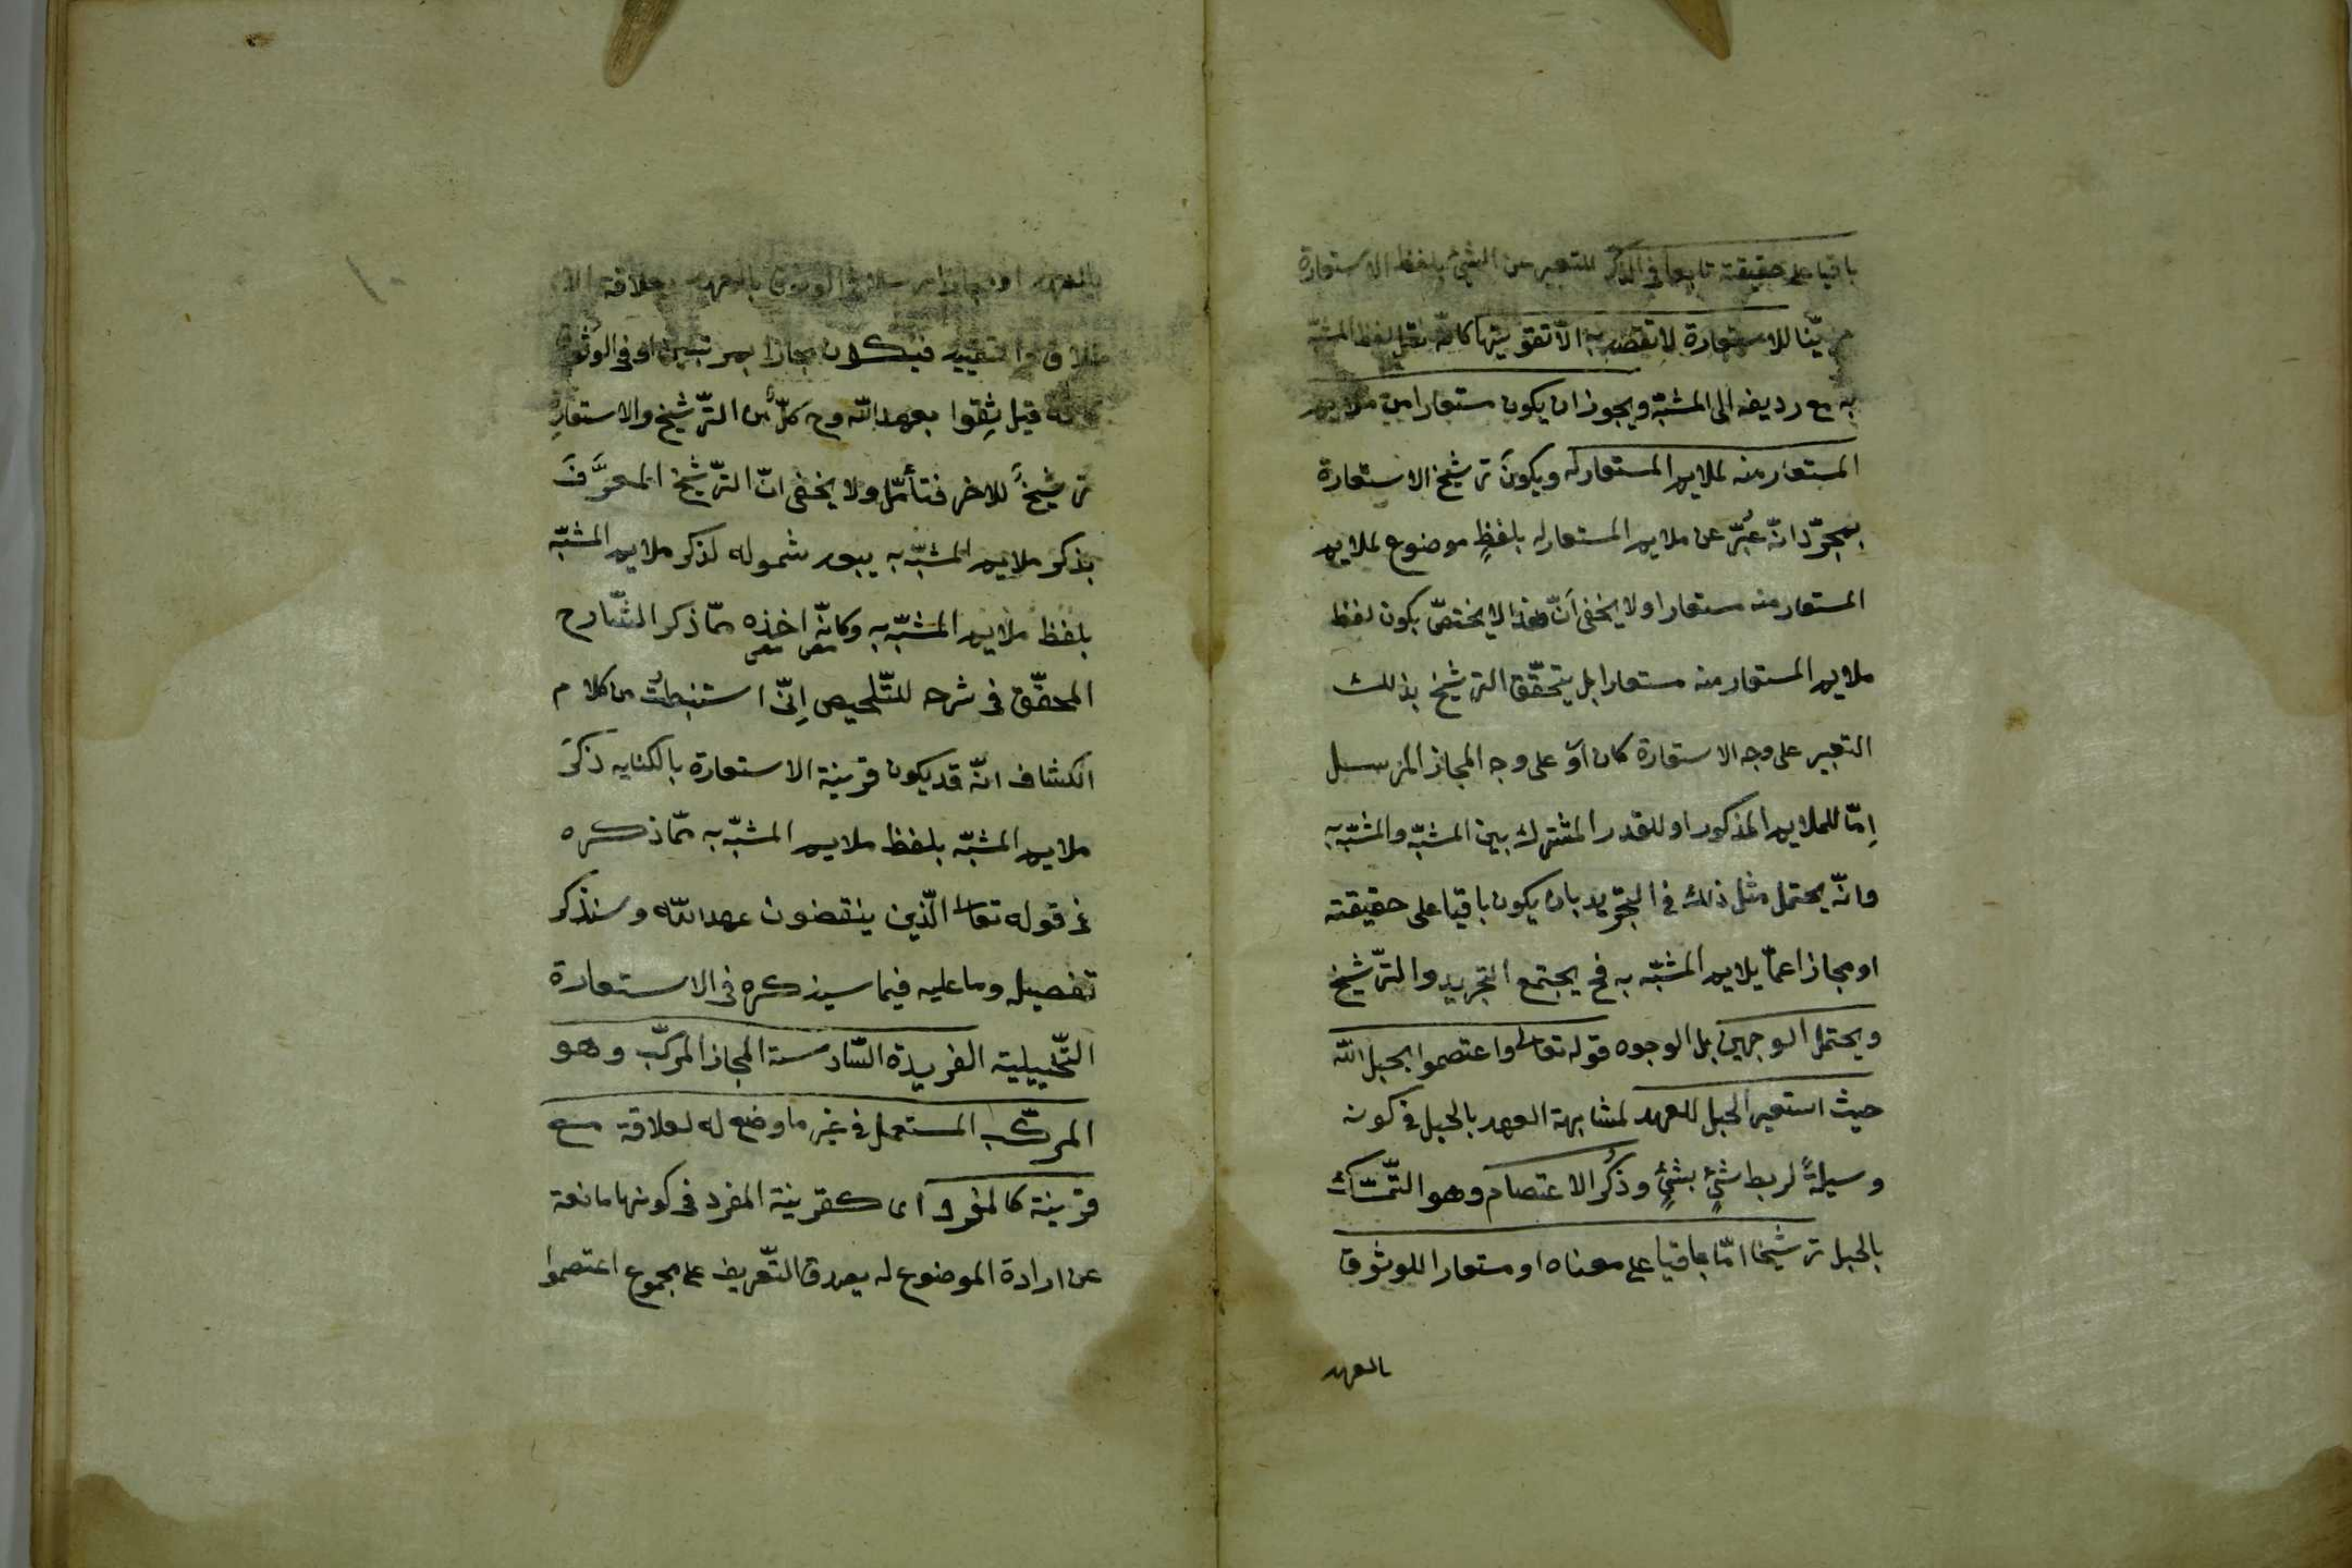 باقيا على حقيقته تابعا في الذكر للتعبير عن الشيء بلفظ الاستعارة
للاستعارة لا تقصد به الّا تقويتها كانّه نقل لفظ المشبّه
به مع رديفه الى المشبّه ويجوز ان يكون مستعارا من ملايم
المستعار منه لملايم المستعار له ويكون ترشيخ الاستعارة
بمجرّد انّه عُبّر عن ملايم المستعار له بلفظٍ موضوع لملايم
المستعار منه مستعارا ولا يخفى انّ هذا لا يختصّ بكون لفظ
ملايم المستعار منه مستعارا بل يتحقّق الترشيخ بذلك
التعبير على وجه الاستعارة كان او على وجه المجاز المرسل
اِمّا للملايم المذكور او للقدر المشترك بين المشبّه والمشبّه به
وانّه يحتمل مثل ذلك في التجريد بان يكون باقيا على حقيقته
او مجازا عمّا يلايم المشبّه به فح يجتمع التجريد والترّشيخ
ويحتمل الوجهين بل الوجوه قوله تعالى واعتصموا بحبل اللّه
حيث استعير الحبل للعهد لمشابهة العهد بالحبل في كونه
وسيلةً لربط شيءٍ بشيءٍ وذُكر الاعتصام وهو التّمسّك
بالحبل ترشيخا امّا باقيا على معناه او مستعارا للوثوق
بالعهد
بالعهد او مجازا مرسلا في الوثوق بالعهد بعلاقة الا
طلاق والتقييد فيكون مجازا بمرتبتين او في الوثوق
كانه قيل ثِقوا بعهد اللّه وح كلّ من الترّشيخ والاستعارة
ترشيخٌ للاخر فتأمّل ولا يخفى انّ الترّشيخ المعرَّفَ
بذكر ملايم المشبّه به يبعد شموله لذكر ملايم المشبّه
بلفظ ملايم المشبّه به وكانّه اخذه ممّا ذكر الشّارح
المحقّق في شرحه للتّلخيص اِنّي استنبطتُ من كلام
الكشاف انّه قد يكون قرينة الاستعارة بالكنايه ذكرَ
ملايم المشبّه بلفظ ملايم المشبّه به ممّا ذكره
في قوله تعالى الّذين ينقضون عهد اللّه وسنذكر
تفصيله وما عليه فيما سيذكره في الاستعارة
التّخييلية الفريدة السّادسة المجاز المركّب وهو
المركّب المستعمل في غير ما وضع له لعلاقة مع
قرينة كالمفرد اى كقرينة المفرد في كونها مانعة
عن ارادة الموضوع له يصدق التّعريف على مجموع اعتصموا